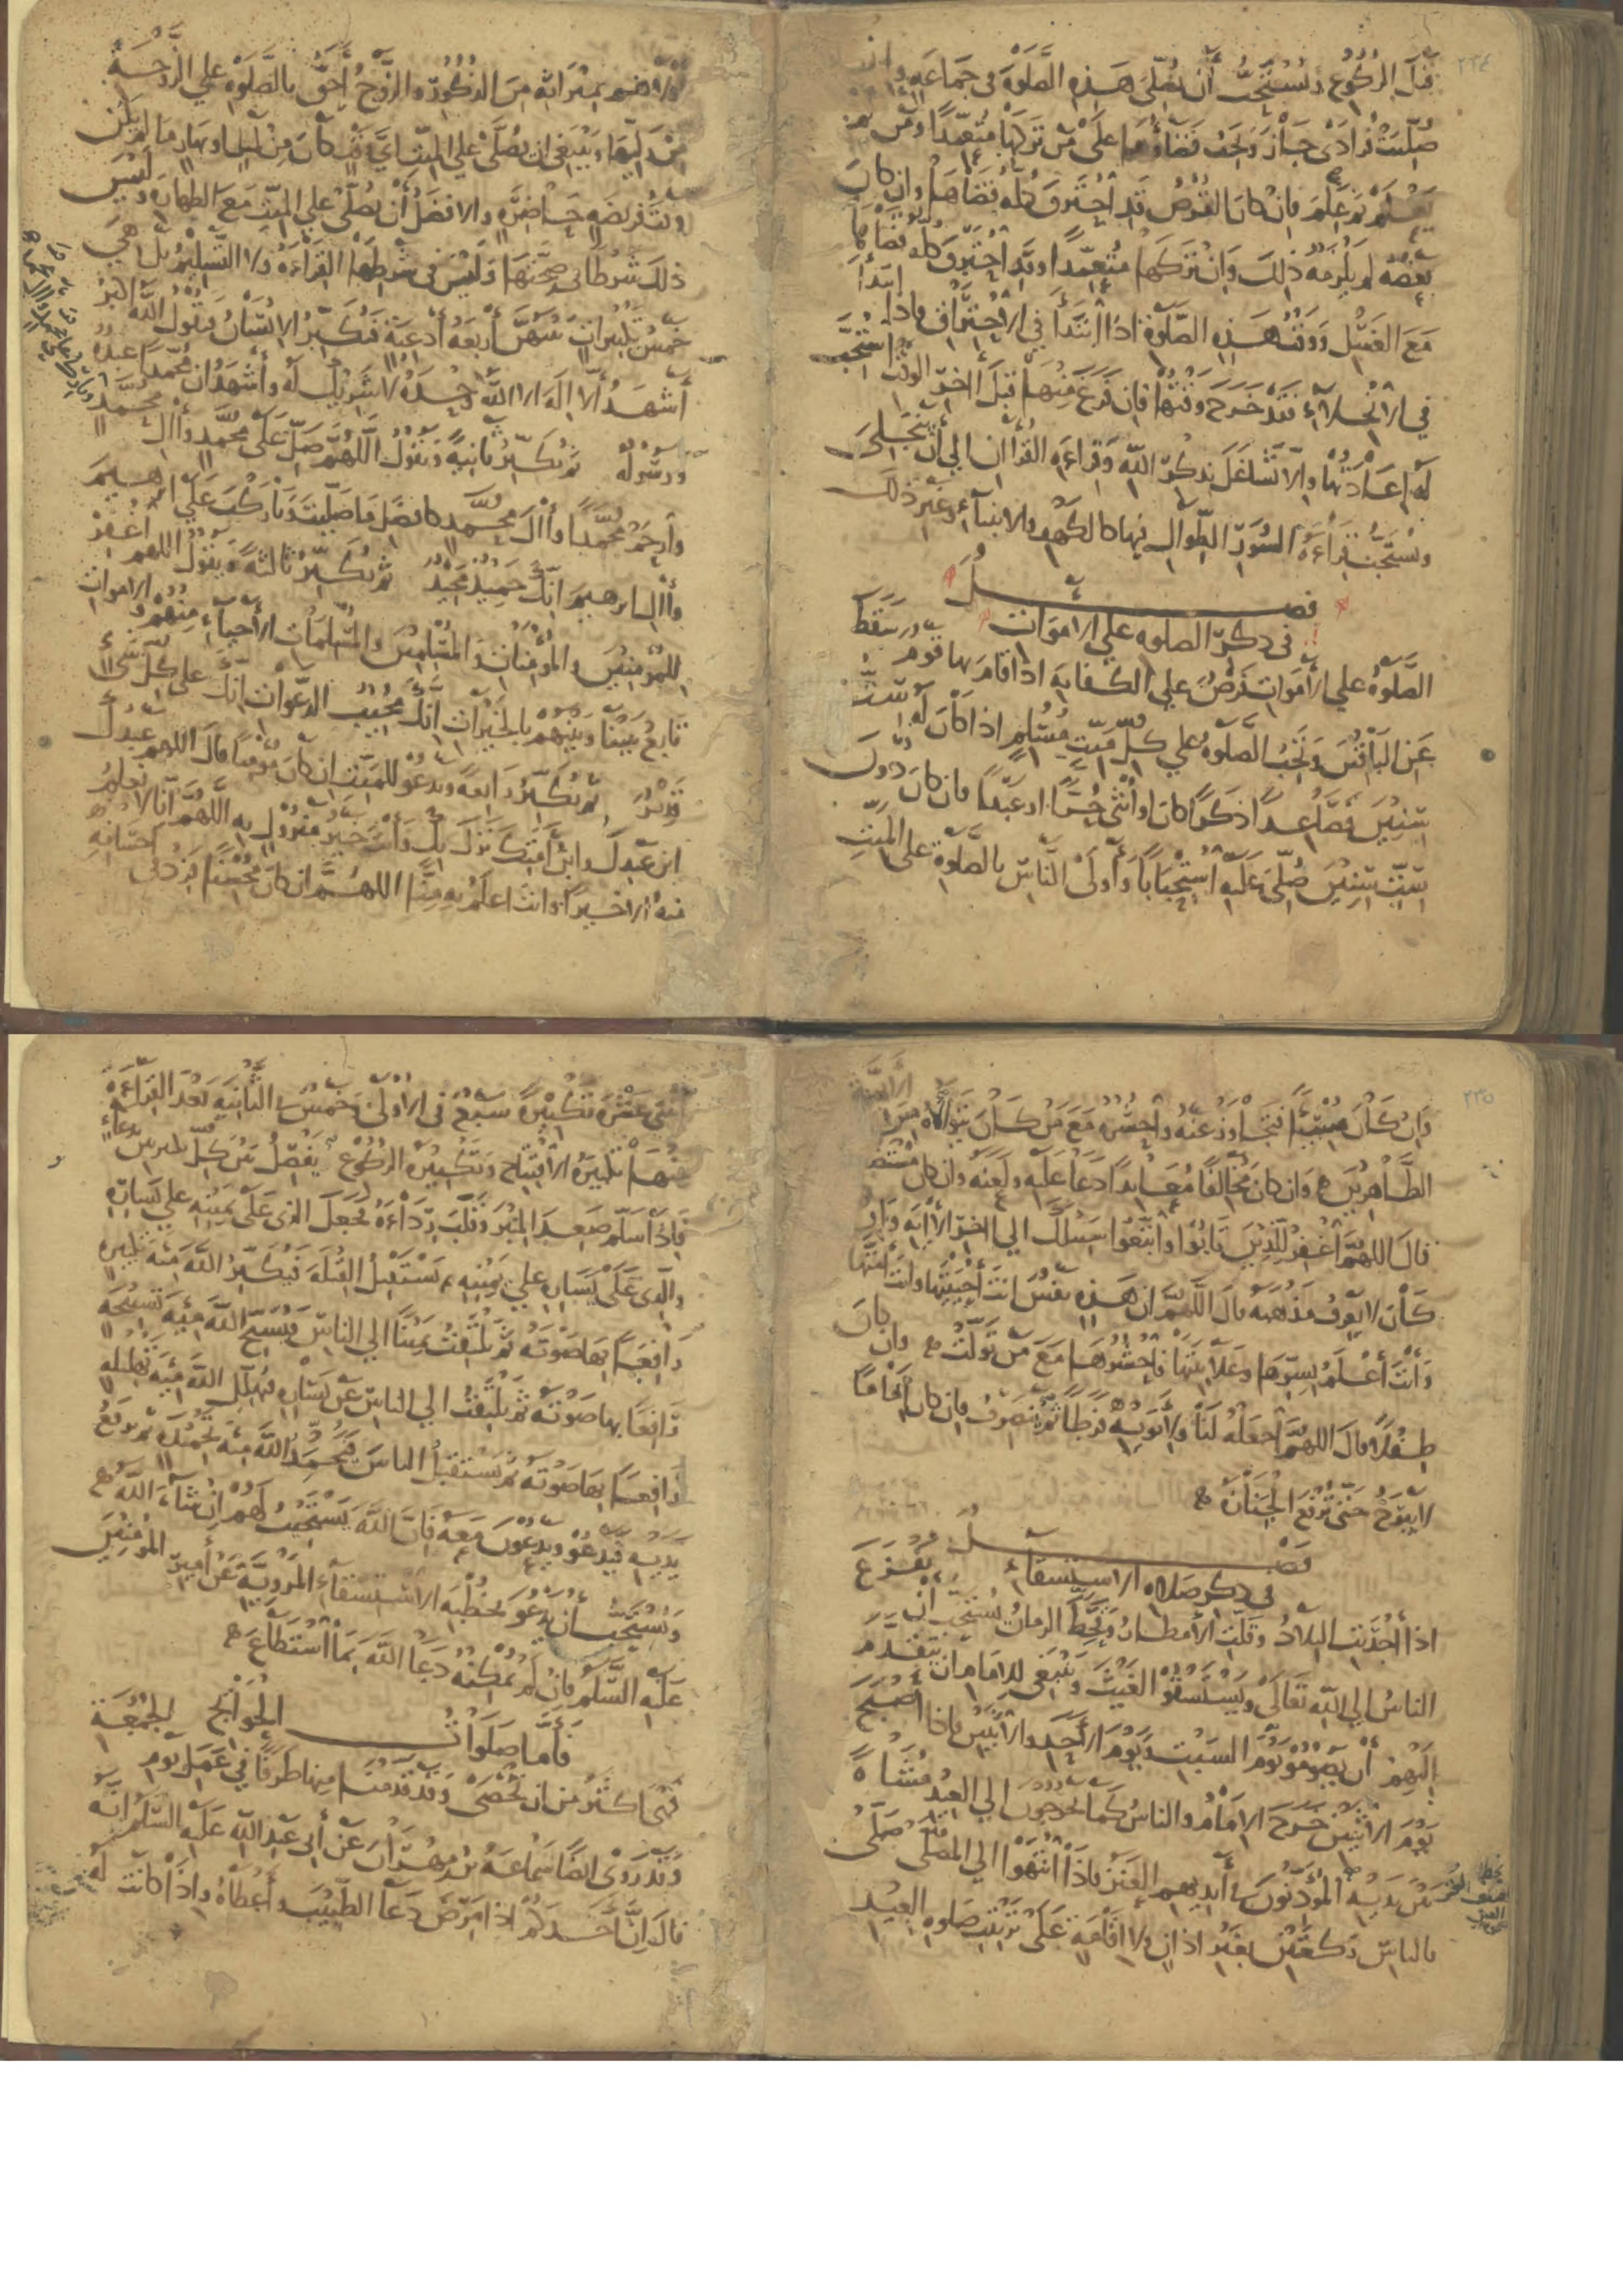 ٢٣٤
قَبلَ الرُكُوعِ ويُسْتَحَبُّ أَن يُصَلِّىَ هَذِهِ الصَّلَوةَ فى جَمَاعَةٍ وان
صُلِّيَتْ فُرَادَى جَازَ وَيَجِبُ قَضَاؤُهَا عَلَى مَن تَرَكَهَا مُتَعَمِّدًا ومَن لم
يَعْلَم ثم عَلِمَ فان كانَ القُرصُ قَدِ احْتَرَقَ كُلُّهُ قَضَاهَا وان كانَ
بَعْضُهُ لم يَلْزَمْهُ ذلِكَ وَاِن تَرَكَهَا مُتَعَمِّدًا وقَدِ احْتَرَقَ كُلُّهُ قَضَاهَا
مَعَ الغَسْلِ ووَقْتُ هَذِهِ الصَّلَوةِ اذا ابْتَدَأَ فِى الاِحْتِرَاقِ فاذا ابْتَدَأَ
فى الاِنْجِلَاءِ فَقَدْ خَرَجَ وَقْتُهَا فَاِن فَرَغَ مِنْهَا قَبلَ آخِرِ الوَقْتِ اسْتُحِبَّ
لَهُ اِعَادَتُهَا واِلّا تَشَاغَلَ بِذِكْرِ اللّهِ وَقِرَاءَةِ القُرْآنِ الى أَن يَنْجَلِىَ
ويُسْتَحَبُّ قِرَاءَةُ السُوَرِ الطِوَالِ فيها كالكَهْفِ والانبيآءِ وغَيْرِ ذلكَ
فصــــــل
فى ذِكرِ الصلوه على الاموَات
الصَّلَوةُ على الأَمْوَاتِ فَرْضٌ على الكفايه اذا قامَ بها قَومٌ سَقَطَ
عَنِ البَاقِينَ وَتَجِبُ الصَّلَوةُ على كُلِّ مَيِّتٍ مُسْلِمٍ اذا كانَ لَهُ سِتُّ
سِنِينَ فَصَاعِدًا ذَكَرًا كانَ او أُنْثى حُرًّا او عَبْدًا فان كانَ دُونَ
سِتِّ سِنِينَ صُلِّىَ عَلَيهِ اسْتِحْبَابًا وَأَولَى النَّاسِ بالصلَوةِ على المَيِّتِ
أَولاهُم بِمِيرَاثِهِ مِنَ الذُكُورِ والزَّوْجُ أَحَقُّ بالصَّلَوةِ على الزَّوْجَةِ
مِن وَلِيِّهَا وَيَنْبَغِى ان يُصَلَّى على المَيِّتِ أَىَّ وَقْتٍ كانَ مِن لَيلٍ او نهارٍ ما لم يَكُن
وَقتَ فَرِيضَةٍ حَاضِرَةٍ والافضَلُ أَن يُصَلَّى على المَيِّتِ مَعَ الطهارَةِ ولَيْسَ
ذلكَ شَرْطًا فى صِحَّتِهَا وَلَيْسَ فى شَرْطِهَا القِرَاءَةُ ولا التَّسْلِيمُ بل هِىَ
خَمسُ تكبيراتٍ بَيْنَهُنَّ أَربَعَةُ أَدْعِيَةٍ فَيُكَبِّرُ الاِنْسَانُ وَيَقُولُ اللّهُ اكبَرُ
أَشْهَدُ أَلَّا اِلَهَ اِلَّا اللّهُ وَحْدَهُ لا شَرِيكَ لَهُ وأَشْهَدُ ان مُحَمَّدًا عَبدُهُ
ورَسُولُهُ ثم يُكَبِّرُ ثانِيةً وَيَقُولُ اللّهُمَّ صَلِّ عَلَى مُحَمَّدٍ وَآلِ مُحَمَّدٍ
وارْحَمْ مُحَمَّدًا وآلَ مُحَمَّدٍ كافضَلِ ما صَلَّيتَ وَبَارَكتَ عَلَى ابرهِيمَ
وآلِ ابرهيمَ اِنَّكَ حَمِيدٌ مَجِيدٌ ثم يُكَبِّرُ ثالثَةً ويَقُولُ اللهمَّ اغْفِرْ
للمُؤمِنِينَ والمُؤْمِنَاتِ والمُسْلِمِينَ والمُسْلِمَاتِ الأَحيآءِ مِنْهُمْ والاَمواتِ
تابِعْ بَيْنَنَا وَبَيْنَهُمْ بالخَيْرَاتِ اِنَّكَ مُجِيبُ الدَّعَوَاتِ اِنَّكَ على كلِّ شَىءٍ
قَدِيرٌ ثم يُكَبِّرُ رَابعةً ويدعُو للمَيِّتِ اِن كانَ مُؤْمِنًا قالَ اللهم عَبْدُكَ
ابن عَبدِكَ وابنُ أَمَتِكَ نَزَلَ بِكَ وَأَنتَ خَيرُ مَنزُولٍ بِهِ اللَّهُمَّ اِنّا لا نعلَمُ
مِنهُ اِلّا خيرًا وانتَ اعلَمُ بِهِ مِنَّا اللهُمَّ ان كانَ مُحْسِنًا فزِد فى احسَانِهِ
٢٣٥
وَاِن كَانَ مُسِيئًا فَتَجَاوَزْ عَنْهُ واحْشُرْهُ مَعَ مَن كَانَ يَتَوَلَّاهُ مِنَ الأَئِمَّةِ
الطَّاهِرِينَ وَاِن كانَ مُخَالِفًا مُعَانِدًا دَعَا عَلَيهِ ولَعَنَهُ وَاِن كانَ مُسْتَضعَفًا
قالَ اللهُمَّ اغْفِرْ لِلَّذِينَ تَابُوا واتَّبَعُوا سَبِيلَكَ الى آخِرِ الآيَةِ وَاِن
كَانَ لا يَعْرِفُ مَذْهَبَهُ قالَ اللَّهُمَّ اِن هَذِهِ نَفْسٌ انتَ أَحيَيْتَهَا وانتَ أَمَتَّهَا
وَأَنْتَ أَعْلَمُ بِسِرِّهَا وعَلانِيَتِهَا فاحْشُرْهَا مَعَ مَن تَوَلَّتْ وان كانَ
طِفْلًا قالَ اللهُمَّ اجْعَلْهُ لَنَا ولأَبَوَيْهِ فَرَطًا ثُمَّ يَنصَرِفُ فان كان اِمَامًا
لا يَبْرَحُ حَتّى تُرْفَعَ الجِنَازَةُ
فصــــــل
فى ذِكر صَلاهِ الاستسقاءِ
اذا أَجْدَبَتِ البِلَادُ وقَلَّتِ الأَمطَارُ وقَحِطَ الزمانُ يُستَحَبُّ أَن يَفْزَعَ
الناسُ اِلى اللّهِ تَعَالَى ويَسْتَسْقُوا الغَيْثَ ويَنبَغى لِلاِمَامِ ان يَتَقَدَّمَ
اِلَيْهِمْ أَن يَصُومُوا يَوْمَ السَبْتِ ويَوْمَ الأَحَدِ والاِثْنَيْنِ فاذا أَصْبَحَ
يَوْمَ الاِثْنَيْنِ خَرَجَ الاِمَامُ والناسُ كَما يَخْرُجُونَ الى العِيدِ مُشَاةً
بَينَ يَدَيْهِ المُؤَذِّنُونَ فى أَيدِيهِم العَنَزُ فاذا انْتَهَوْا الى المُصَلّى صَلّى
بالناسِ رَكعَتَيْنِ بِغَيْرِ اذانٍ ولا اِقَامَةٍ عَلَى تَرْتِيبِ صلوهِ العِيْد
اثنَتى عَشْرَةَ تَكْبِيْرَةً سَبْعٌ فى الاُولى وَخَمسٌ فى الثَّانِيَةِ بَعْدَ القِرَآءَةِ
مِنْهَا تَكبِيرَةُ الاِفْتِتَاحِ وَتَكْبِيرَةُ الركُوعِ يَفْصِلُ بَيْنَ كُلِّ تكبيرتين بِدُعاءٍ
فَاِذَا سَلَّمَ صَعِدَ المِنْبَرَ وَقَلَبَ رِدَاءَهُ فَجَعَلَ الذى عَلَى يَمِيْنِهِ على يَسَارِهِ
والَّذى عَلَى يَسَارِهِ على يَمِيْنِهِ ثم يَسْتَقْبِلُ القِبْلَةَ فَيُكَبِّرُ اللّهَ مِئَةَ تكبيرةٍ
رَافِعًا بِهَا صَوْتَهُ ثم يَلْتَفِتُ يَمِينًا الى الناسِ فَيُسَبِّحُ اللّهَ مِئَةَ تَسْبِيحَةٍ
رَافِعًا بها صَوْتَهُ ثم يَلْتَفِتُ الى الناسِ عَن يَسَارِهِ فَيُهَلِّلُ اللّهَ مِئَةَ تَهْلِيلَةٍ
رَافِعًا بِهَا صَوْتَهُ ثم يَسْتَقْبِلُ الناسَ فَيَحْمَدُ اللّهَ مِئَةَ تَحْمِيدَةٍ ثم يَرْفَعُ
يَدَيهِ فَيَدعُو ويَدْعُونَ مَعَهُ فَاِنَّ اللّهَ يَسْتَجِيبُ لَهُمْ اِن شَآءَ اللّهُ
ويُسْتَحَبُّ أَن يَدعُوَ بخُطْبَةِ الاسْتِسْقَآءِ المَرْوِيَّةِ عَن أَمِيرِ المُؤْمِنِينَ
عَلَيهِ السَّلَمُ فَاِن لَم يُمْكِنْهُ دَعَا اللّهَ بِمَا اسْتَطَاعَ
فَأَمَّا صَلَوَاتُ الحَوَائِجِ
فَهِىَ اكثَرُ مِن ان تُحْصَى وقَد قَدَّمنَا مِنها طَرَفًا فى عَمَلِ يَومِ الجُمْعَةِ
وَقَد رَوَى ايضًا سَمَاعَةُ بن مِهْرَانَ عَن أَبى عَبدِ اللّهِ عَلَيهِ السَّلَمُ اَنَّهُ
قالَ اِنَّ أَحَدَكُم اذا مَرِضَ دَعَا الطَّبِيبَ وأَعْطَاهُ واِذَا كانَت لَهُ